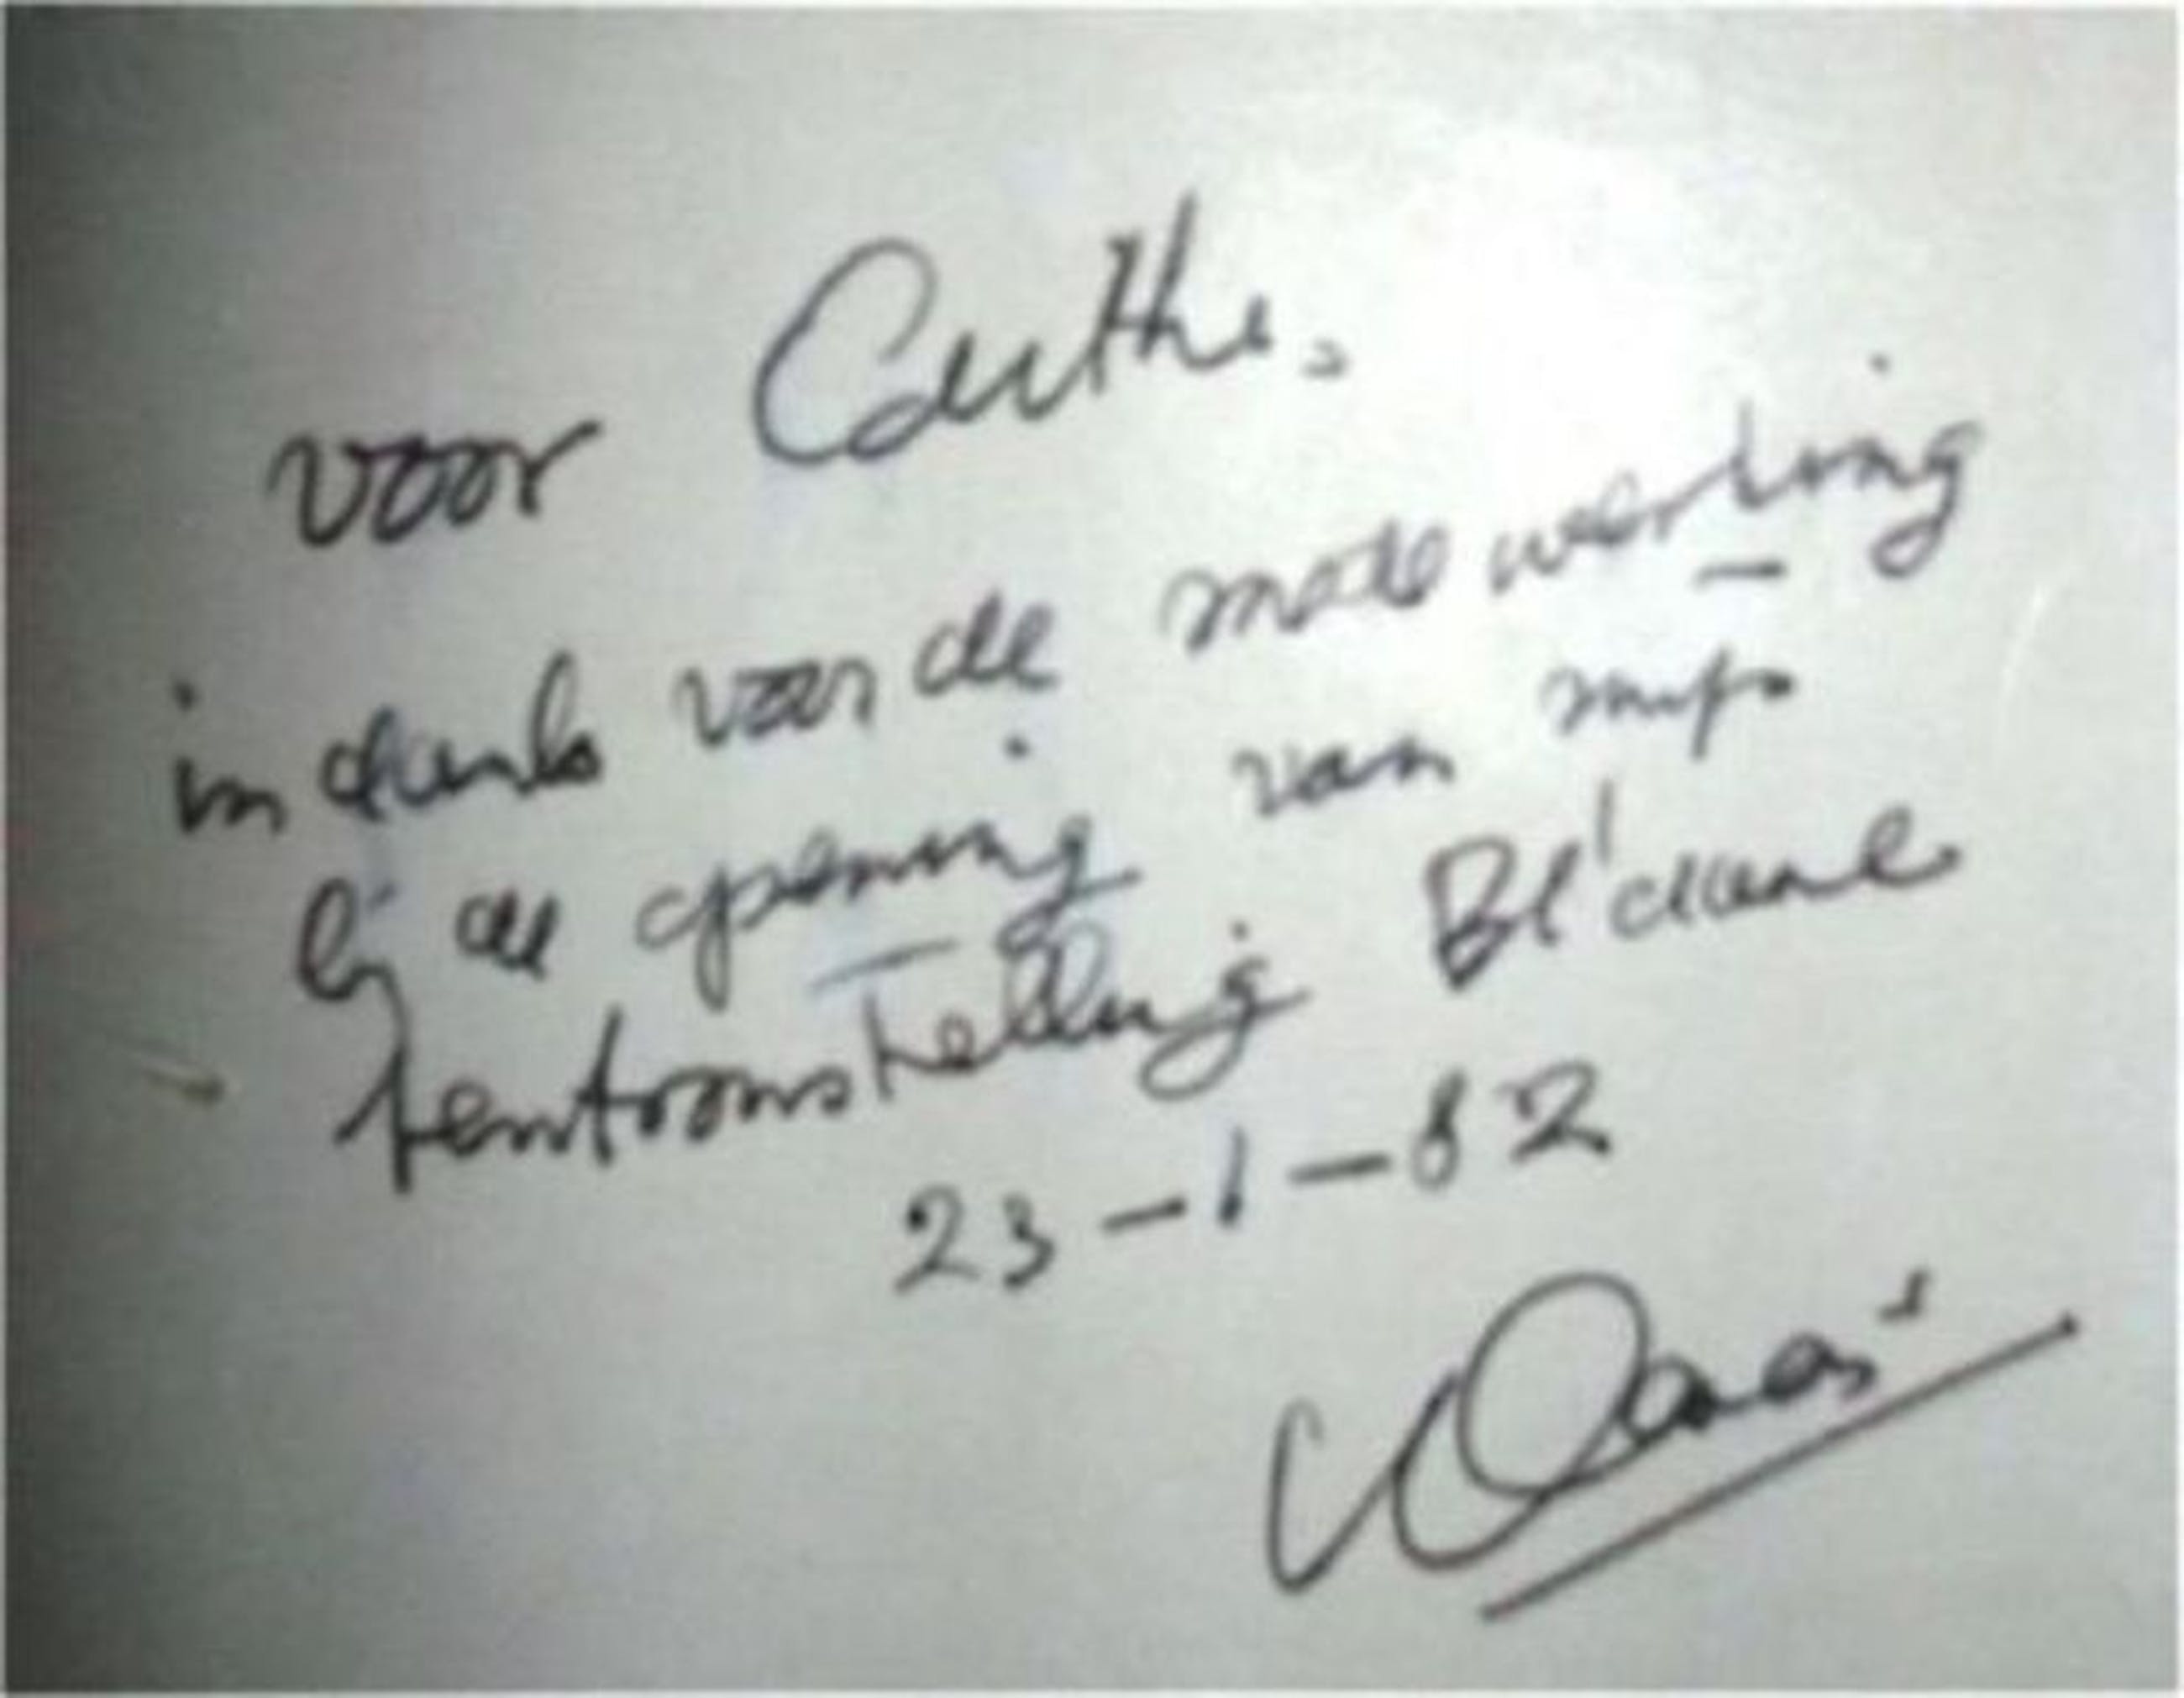 voor
in dank voor de medewerking
bij de opening van mijn
tentoonstelling
23-1-82